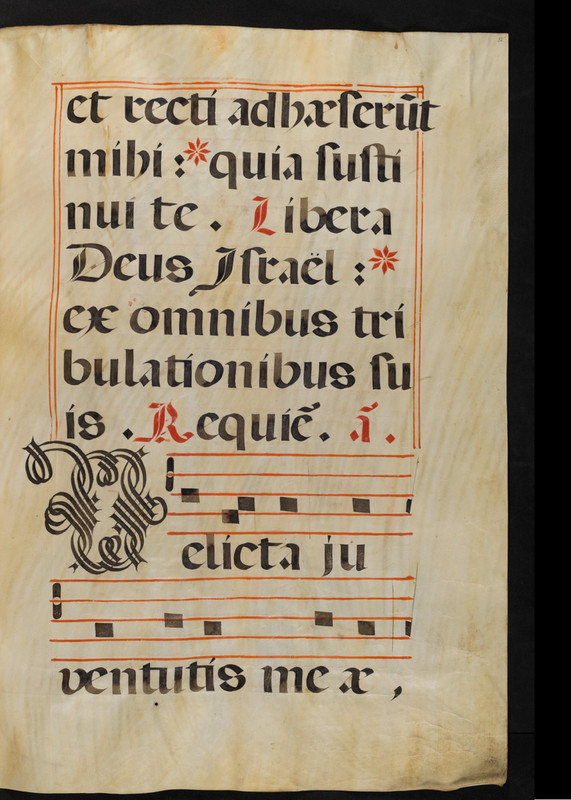 et recti adhæserūt
mihi : * quia susti
nui te . Libera
Deus Israël : *
ex omnibus tri
bulationibus su
is . Requiē . ā .
Delicta ju
ventutis meæ ,